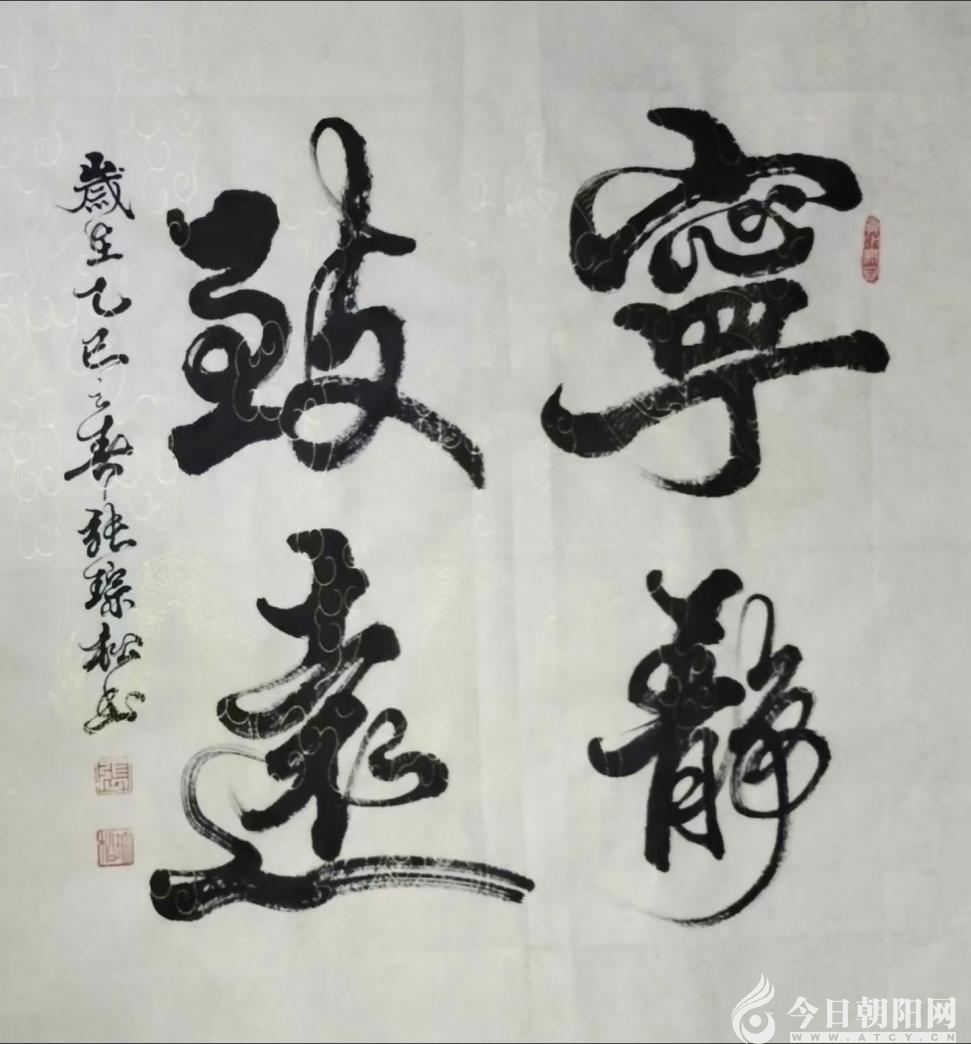 寧靜
致遠
歲在乙巳之春張琮松書
今日朝阳网
WWW.ATCY.CN